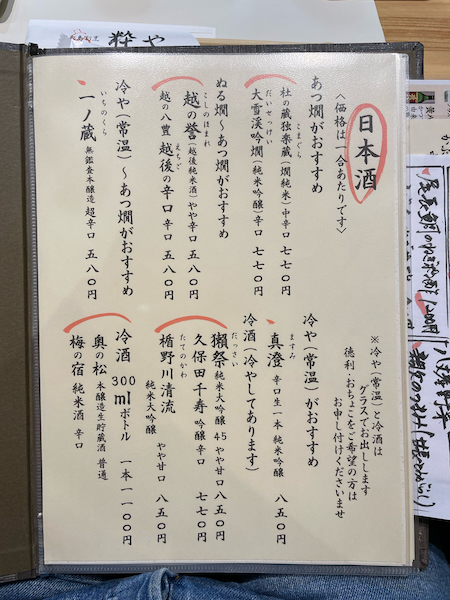 日本酒
〈価格は一合あたりです〉
あつ燗がおすすめ
こまぐら
杜の蔵独楽蔵(燗純米)中辛口 七七〇円
だいせっけい
大雪渓吟燗(純米吟醸)辛口 七七〇円
ぬる燗～あつ燗がおすすめ
こしのほまれ
越の誉(越後純米酒)やや辛口 五八〇円
えちご
越の八豊 越後の辛口 辛口 五八〇円
冷や(常温)～あつ燗がおすすめ
いちのくら
一ノ蔵 無鑑査本醸造 超辛口 五八〇円
※冷や(常温)と冷酒は
グラスでお出しします
徳利・おちょこをご希望の方は
お申し付けくださいませ
冷や(常温)がおすすめ
ますみ
真澄 辛口生一本 純米吟醸 八五〇円
冷酒(冷やしてあります)
だっさい
獺祭 純米大吟醸 45 やや甘口 八五〇円
久保田千寿 吟醸 辛口 七七〇円
たてのかわ
楯野川清流
純米大吟醸 やや甘口 八五〇円
冷酒 300mlボトル 一本 一一〇〇円
奥の松 本醸造生貯蔵酒 普通
梅の宿 純米酒 辛口
粋や